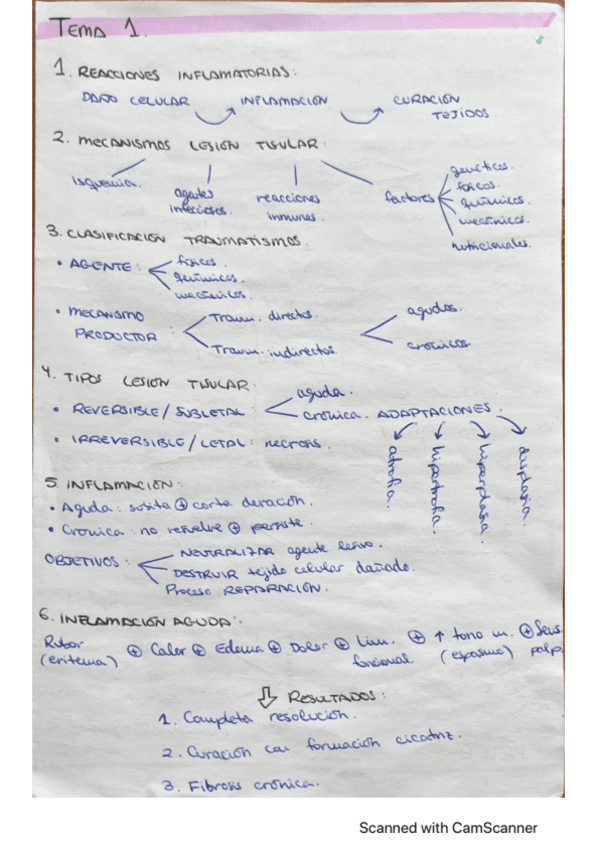 TEMA 1.
1. REACCIONES INFLAMATORIAS:
DAÑO CELULAR INFLAMACIÓN CURACIÓN TEJIDOS.
2. MECANISMOS LESION TISULAR.
isquemia. agentes infecciosos. reacciones inmunas. factores
genéticos.
físicos.
químicos.
mecánicos.
nutricionales.
3. CLASIFICACION TRAUMATISMOS.
• AGENTE:
físicos.
químicos.
mecánicos.
• MECANISMO PRODUCTOR:
Traum. directos.
Traum. indirectos.
agudos.
crónicos.
4. TIPOS LESION TISULAR:
• REVERSIBLE/SUBLETAL:
aguda.
crónica. ADAPTACIONES.
atrofia.
hipertrofia.
hiperplasia.
displasia.
• IRREVERSIBLE/LETAL: necrosis.
5. INFLAMACIÓN:
• Aguda: súbita ⊕ corta duración.
• Crónica: no resuelve ⊕ persiste.
OBJETIVOS:
NEUTRALIZAR agente lesivo.
DESTRUIR tejido celular dañado.
Proceso REPARACIÓN.
6. INFLAMACIÓN AGUDA:
Rubor (eritema) ⊕ Calor ⊕ Edema ⊕ Dolor ⊕ Lim. funcional ⊕ ↑ tono m. (espasmo) ⊕ Sens palp.
RESULTADOS:
1. Completa resolución.
2. Curación con formación cicatriz.
3. Fibrosis crónica.
Scanned with CamScanner